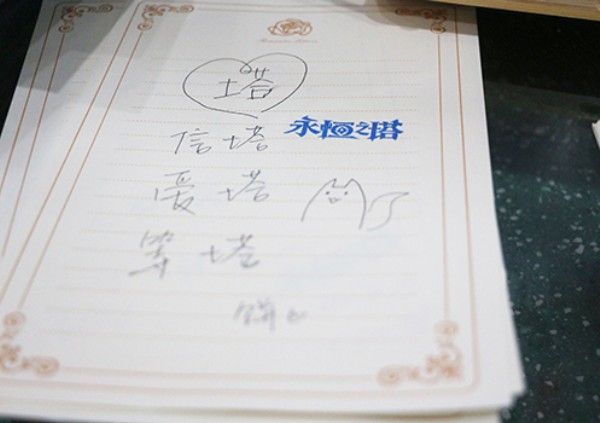 塔
信 塔
永恒之塔
爱 塔
等 塔